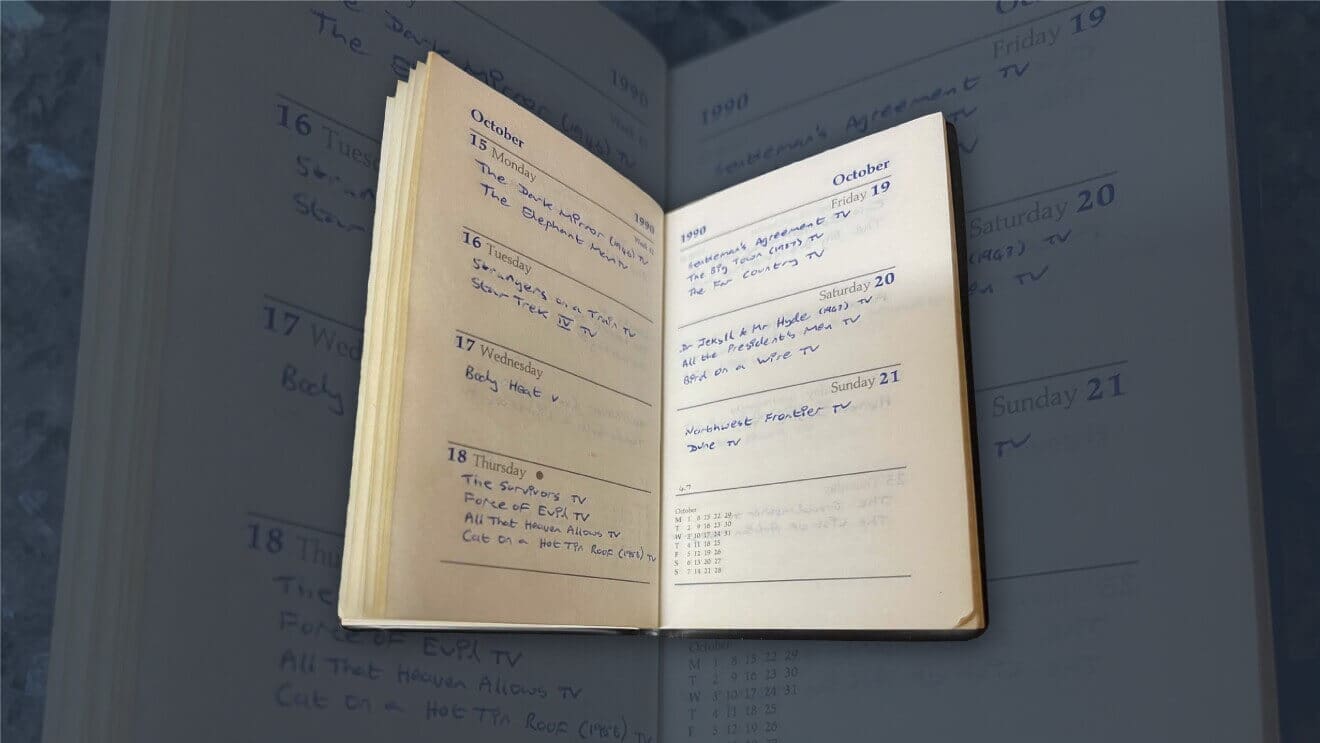 October
1990
15 Monday
The Dark Mirror (1946) TV
The Elephant Man TV
16 Tuesday
Strangers on a Train TV
Star Trek IV TV
17 Wednesday
Body Heat v
18 Thursday
The Survivors TV
Force of Evil TV
All That Heaven Allows TV
Cat on a Hot Tin Roof (1958) TV
October
1990
Friday 19
Gentleman's Agreement TV
The Big Town (1987) TV
The Far Country TV
Saturday 20
Dr Jekyll & Mr Hyde TV
All the President's Men TV
Bird on a Wire TV
Sunday 21
Northwest Frontier TV
Dune TV
October
M 1 8 15 22 29
T 2 9 16 23 30
W 3 10 17 24 31
T 4 11 18 25
F 5 12 19 26
S 6 13 20 27
S 7 14 21 28